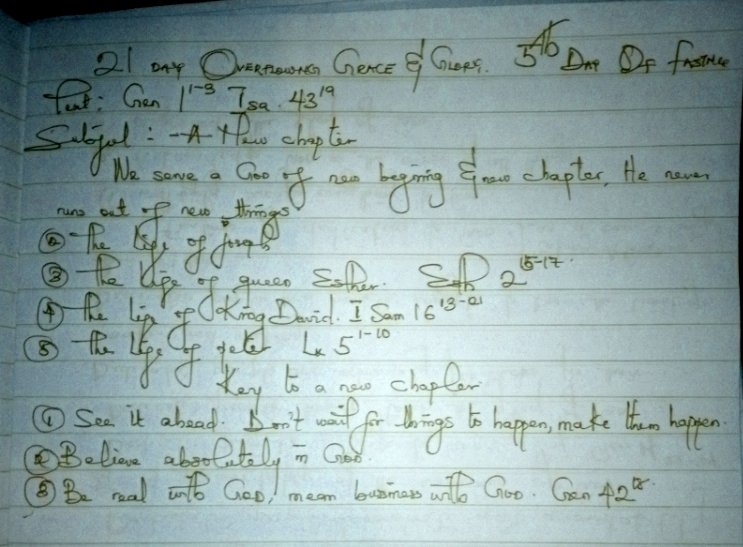 21 DAY OVERFLOWING GRACE & GLORY. 5th DAY OF FASTING
Text: Gen 1 1-3 Isa. 43 19
Subject: - A New chapter
We serve a GOD of new begining & new chapter, He never
runs out of new things
② The life of Joseph
③ The life of queen Esther. Esth 2 15-17.
④ The life of King David. I Sam 16 13-21
⑤ The life of peter Lk 5 1-10
Key to a new chapter
① See it ahead. Don't wait for things to happen, make them happen.
② Believe absolutely in GOD.
③ Be real with GOD, mean business with GOD. Gen 42 18.